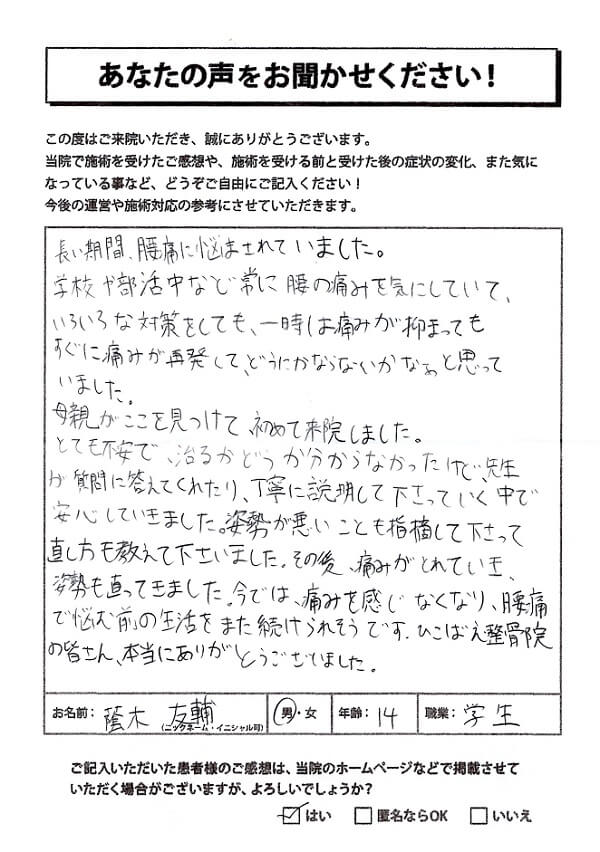 あなたの声をお聞かせください！
この度はご来院いただき、誠にありがとうございます。
当院で施術を受けたご感想や、施術を受ける前と受けた後の症状の変化、また気に
なっている事など、どうぞご自由にご記入ください！
今後の運営や施術対応の参考にさせていただきます。
長い期間、腰痛に悩まされていました。
学校や部活中など常に腰の痛みを気にしていて、
いろいろな対策をしても、一時は痛みが抑まっても
すぐに痛みが再発して、どうにかならないかなぁと思って
いました。
母親がここを見つけて、初めて来院しました。
とても不安で、治るかどうか分からなかったけど、先生
が質問に答えてくれたり、丁寧に説明して下さっていく中で
安心していきました。姿勢が悪いことも指摘して下さって
直し方も教えて下さいました。その後、痛みがとれていき、
姿勢も直ってきました。今では、痛みを感じなくなり、腰痛
で悩む前の生活をまた続けられそうです。ひこばえ整骨院
の皆さん、本当にありがとうございました。
お名前： 蔭木 友輔 (ニックネーム・イニシャル可) 男・女 年齢： 14 職業： 学生
ご記入いただいた患者様のご感想は、当院のホームページなどで掲載させて
いただく場合がございますが、よろしいでしょうか？
はい 匿名ならOK いいえ